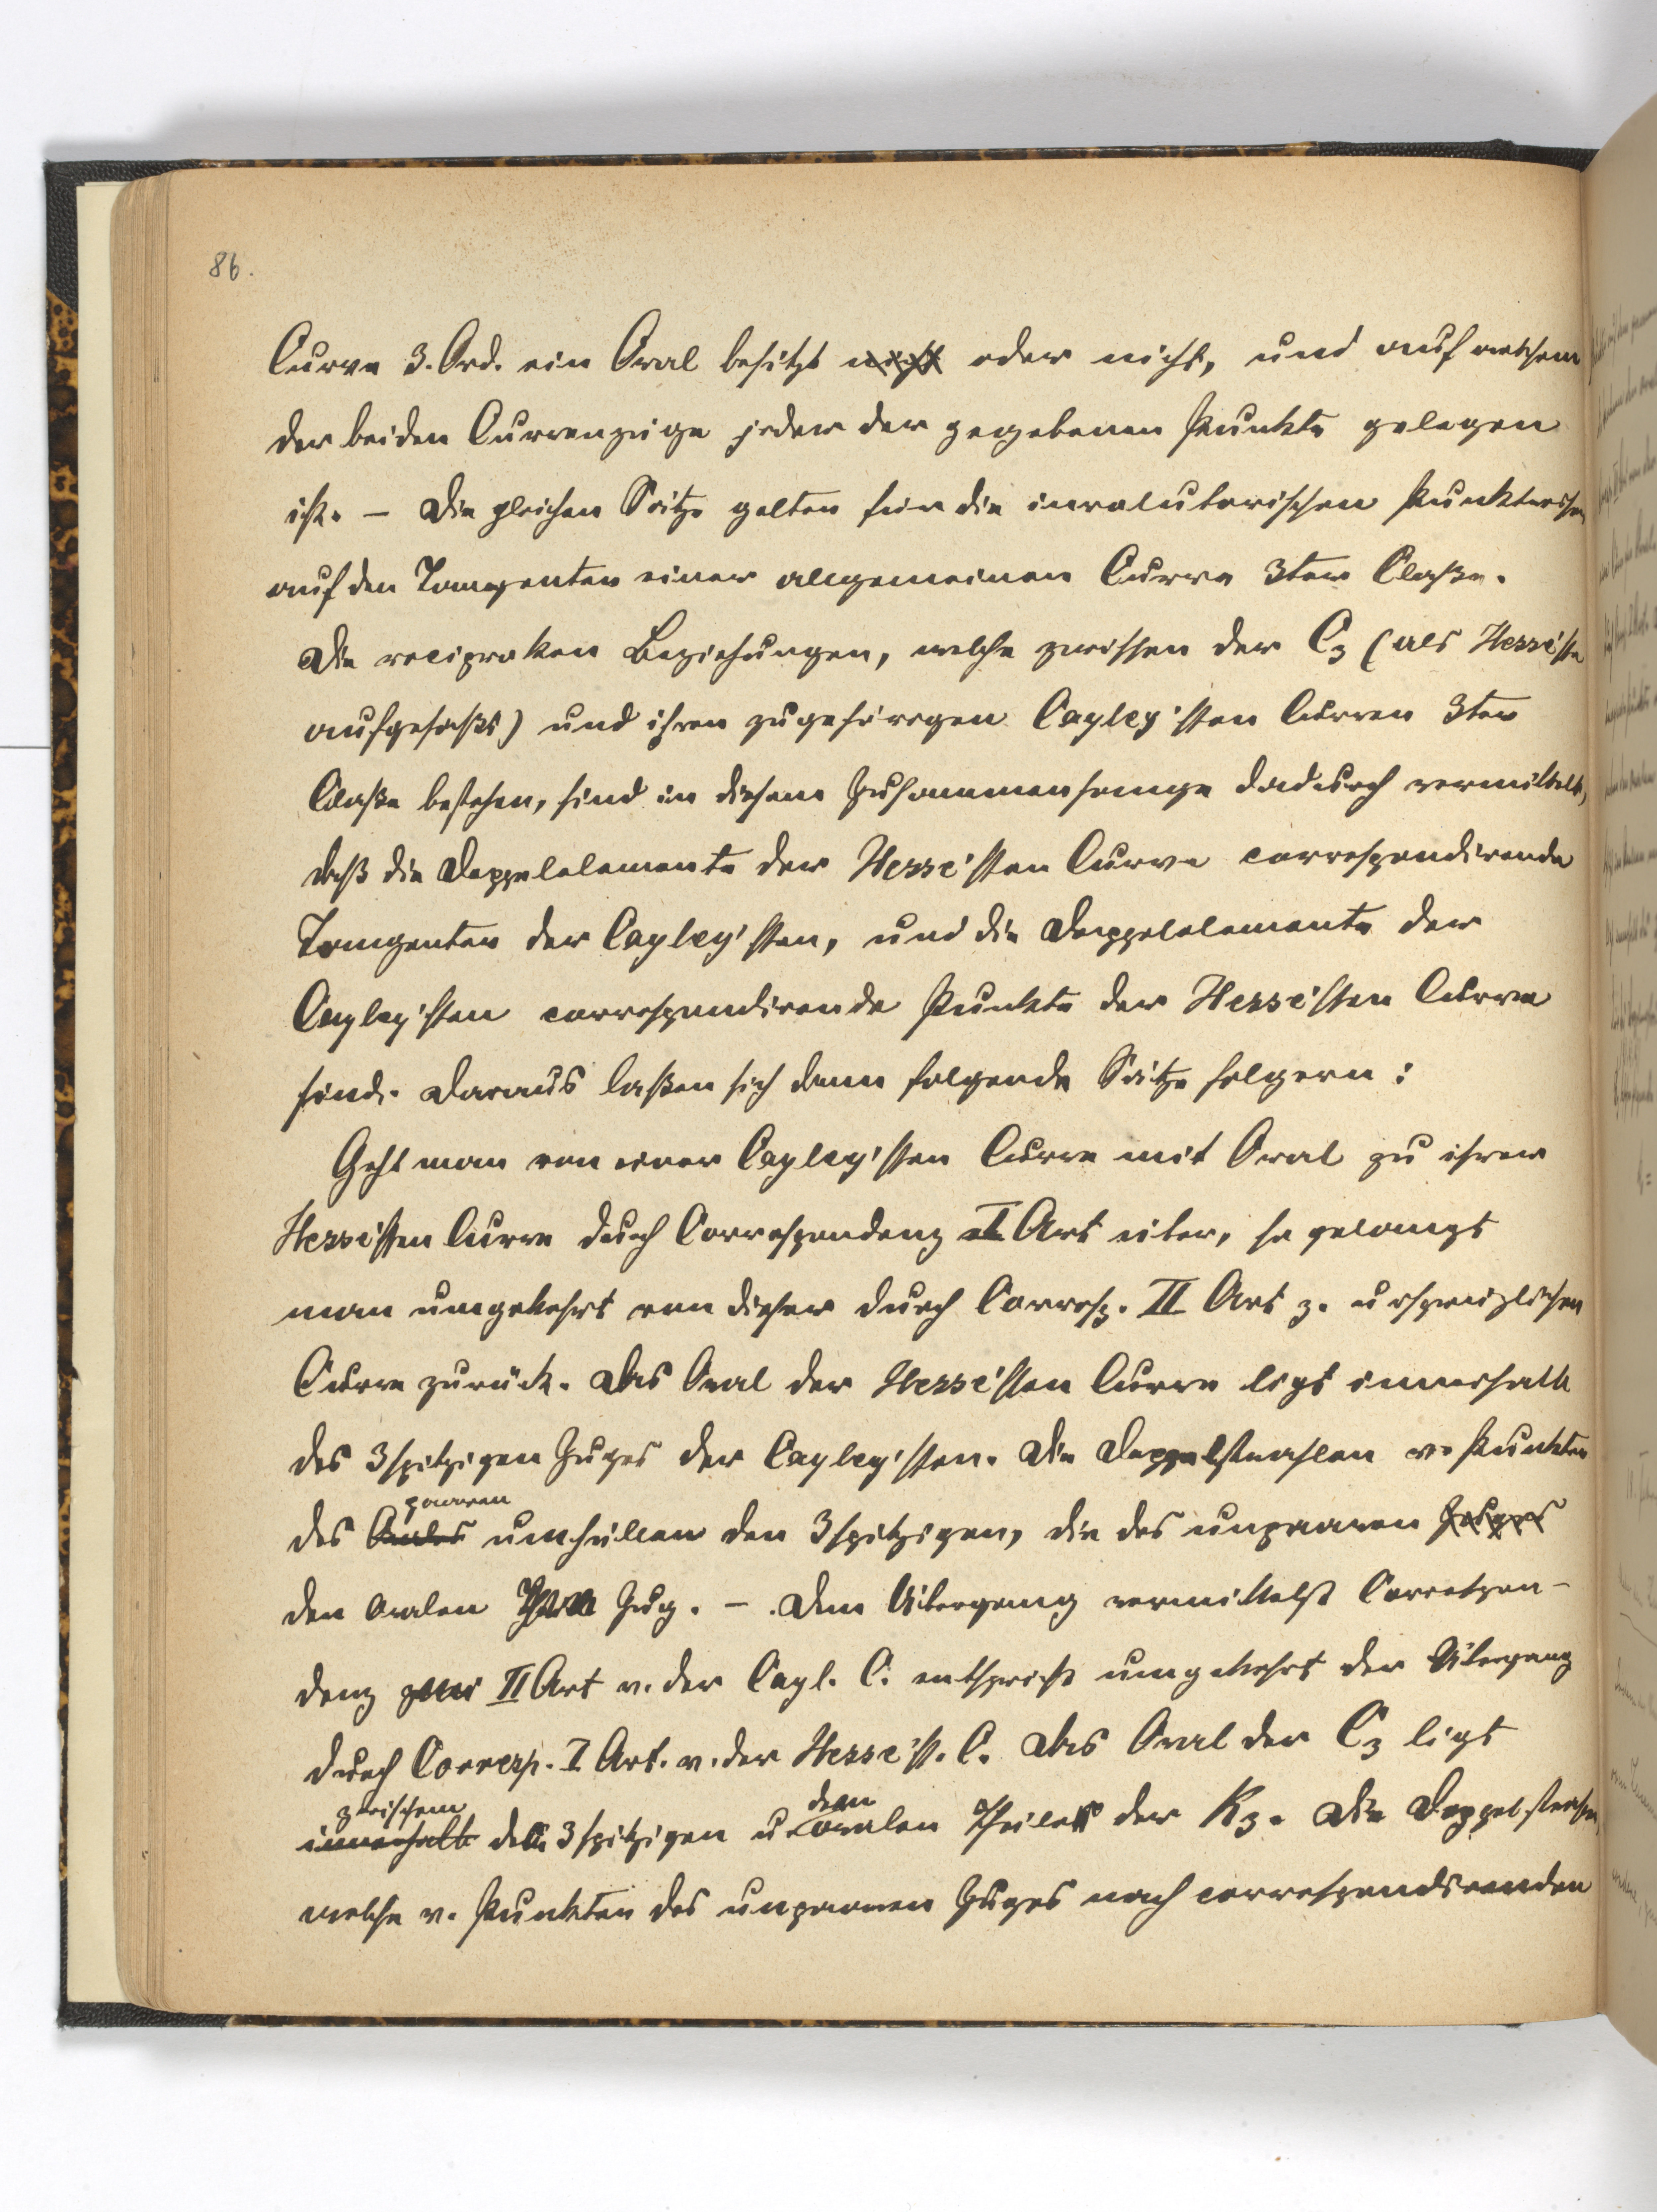 86.
Curve 3. Ord. ein Oval besitzt nicht oder nicht, und auf welchem
der beiden Curvenzüge jeder der gegebenen Punkte gelegen
ist. – Die gleichen Sätze gelten für die involutorischen Punktreihen
auf den Tangenten einer allgemeinen Curve 3ter Claße.
Die reciproken Beziehungen, welche zwischen der C3 (als Hesse'sche
aufgefaßt) und ihren zugehörigen Cayley'schen Curven 3ter
Claße bestehen, sind in diesem Zusammenhange dadurch vermittelt,
daß die Doppelelemente der Hesse'schen Curve correspondirende
Tangenten der Cayley'schen, und die Doppelelemente der
Cayley'schen correspondirende Punkte der Hesse'schen Curve
sind. Daraus laßen sich dann folgende Sätze folgern:
Geht man von einer Cayley'schen Curve mit Oval zu ihrer
Hesse'schen Curve durch Correspondenz I Art über, so gelangt
man umgekehrt von dieser durch Corresp. II Art z. ursprünglichen
Curve zurück. Das Oval der Hesse'schen Curve ligt innerhalb
des 3spitzigen Zuges der Cayley'schen. Die Doppelstrahlen v. Punkten
paaren
des Ovales umhüllen den 3spitzigen, die des unpaaren Zuges
den ovalen Zug. – Dem Übergang vermittelst Correspon-
denz II Art v. der Cayl. C. entspricht umgekehrt der Übergang
durch Corresp. I Art. v. der Hesse'sch. C. Das Oval der C3 ligt
zwischem dem
innerhalb 3spitzigen u. ovalen Theile der K3. Die Doppelstrahlen,
welche v. Punkten des unpaaren Zuges nach correspondirenden